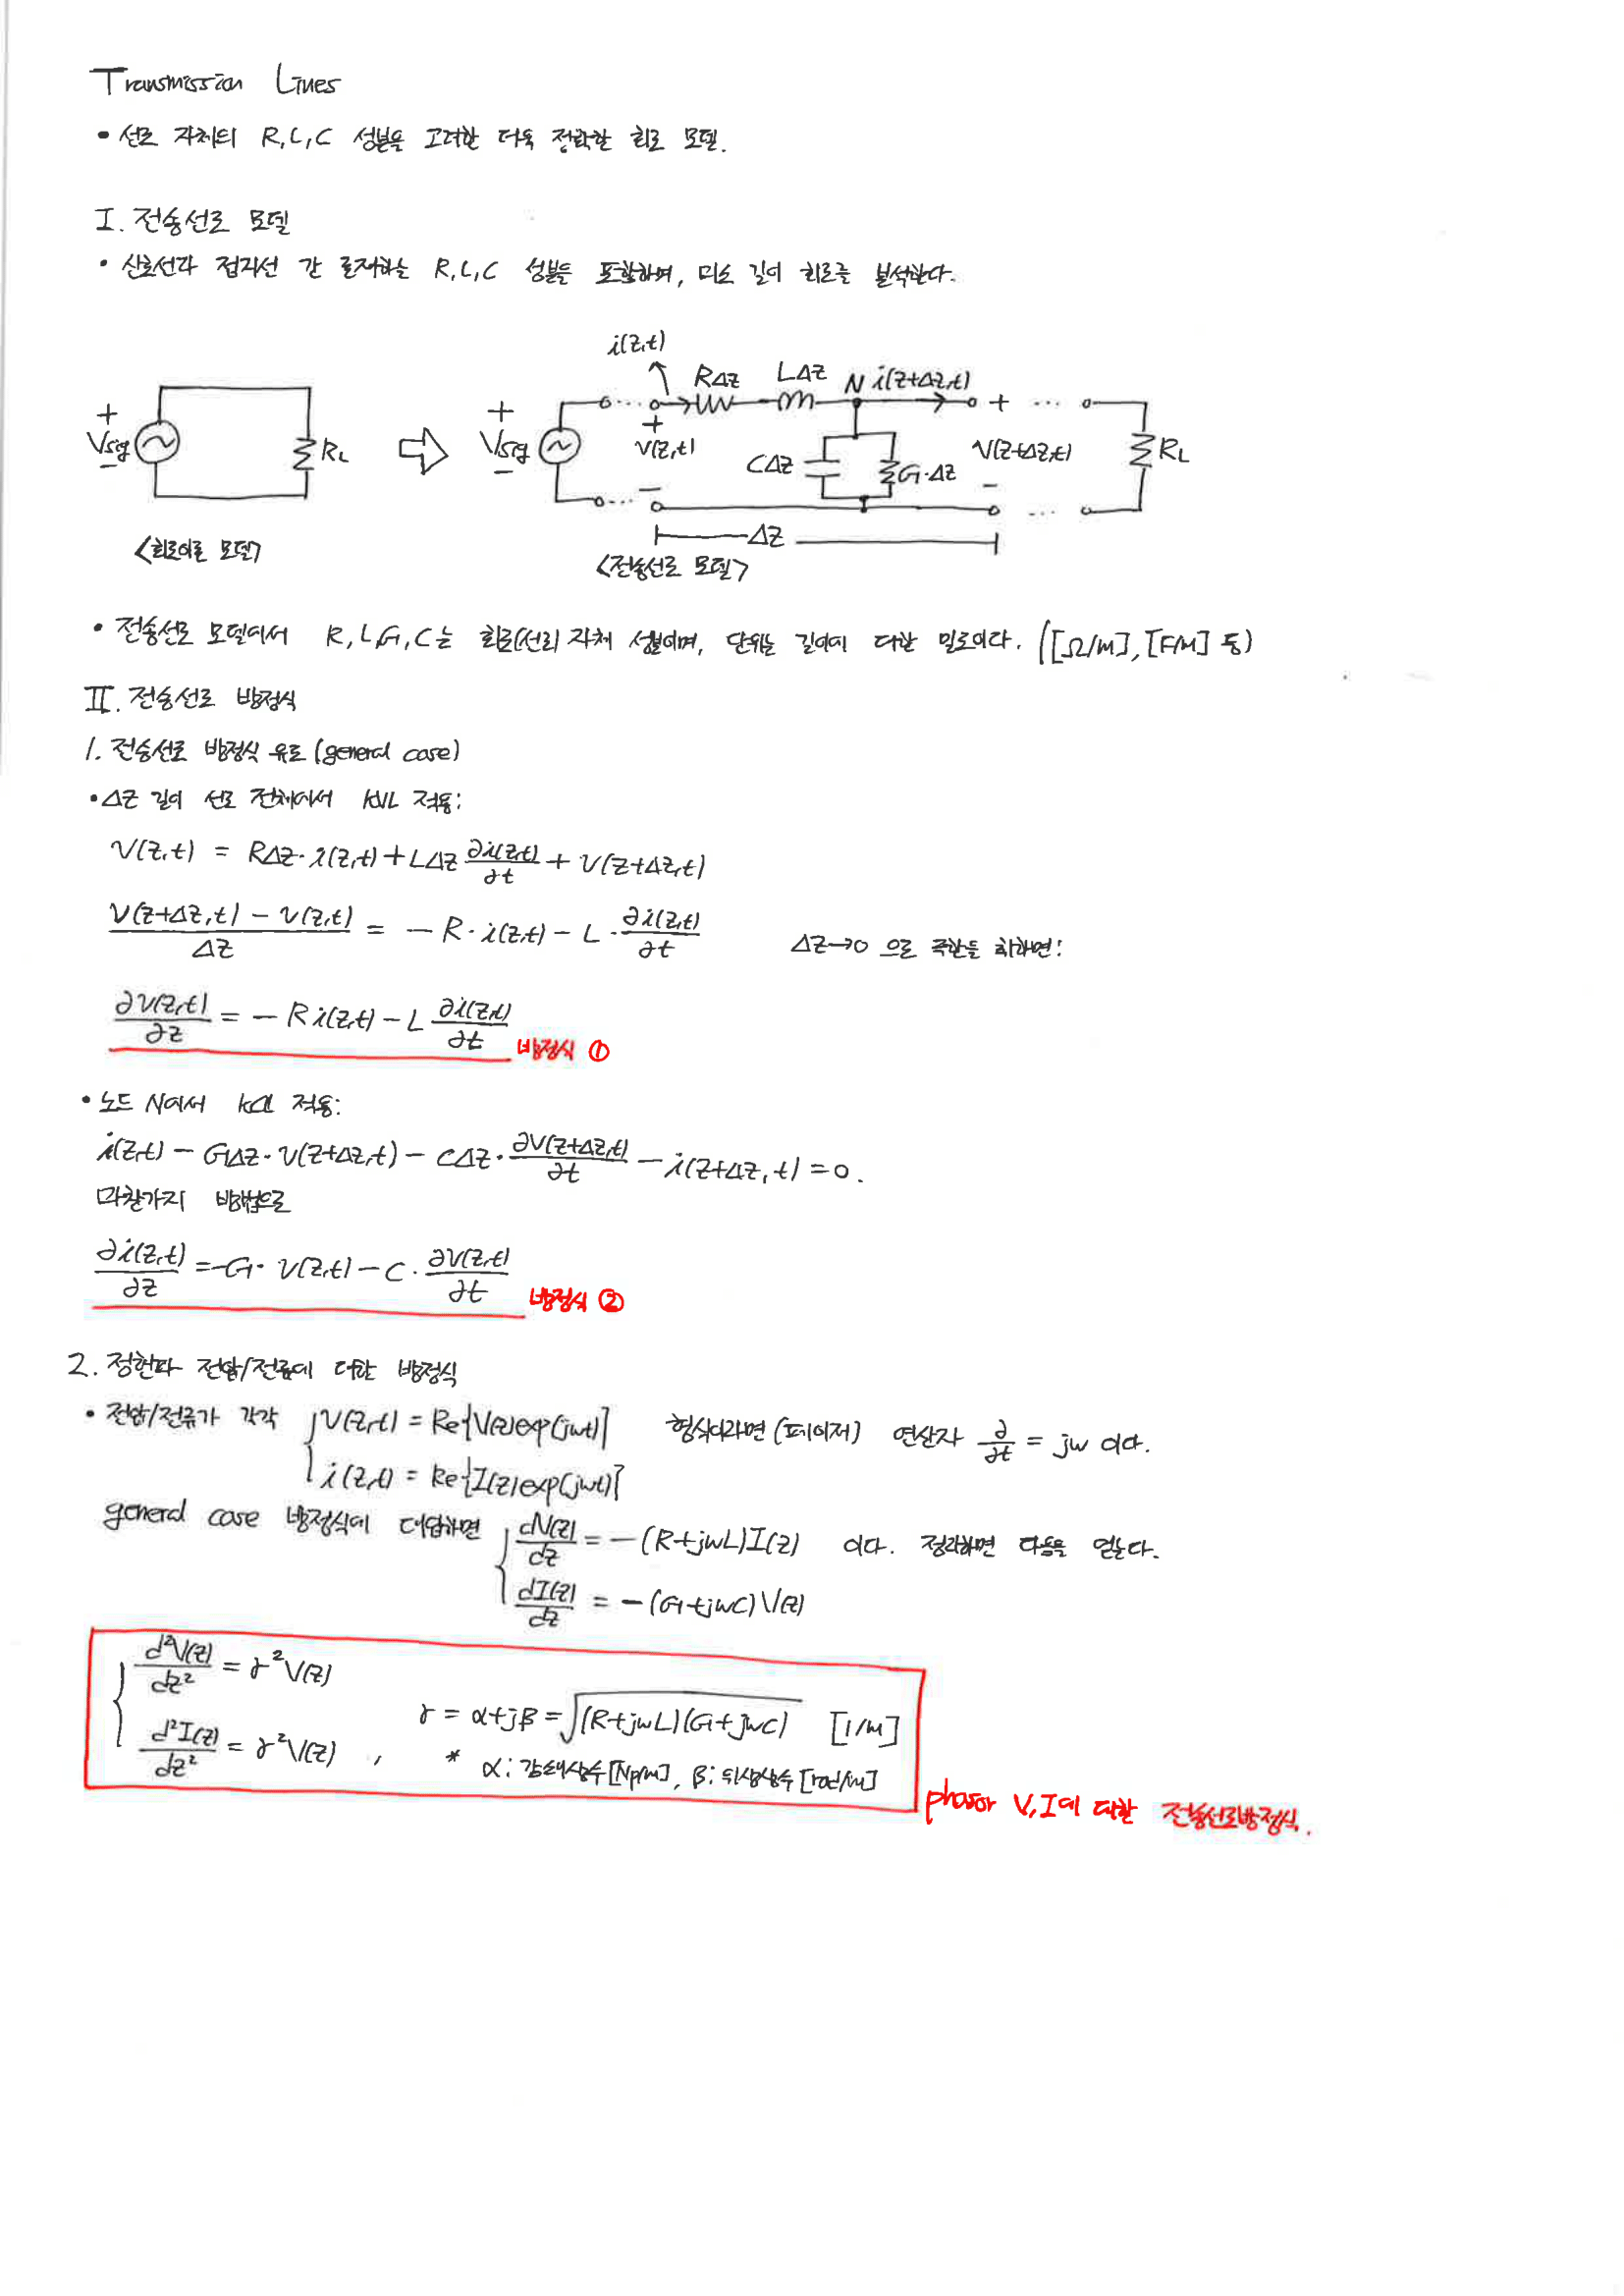 Transmission Lines
• 선로 자체의 R, L, C 성분을 고려한 더욱 정확한 회로 모델.
I. 전송선로 모델
• 신호선과 접지선 간 존재하는 R, L, C 성분을 포함하며, 미소 길이 회로를 분석한다.
i(z,t)
RΔz LΔz N i(z+Δz,t)
+ Vsig − RL ⇨ + Vsig − + v(z,t) − CΔz G·Δz + v(z+Δz,t) − RL
Δz
<회로이론 모델> <전송선로 모델>
• 전송선로 모델에서 R, L, G, C는 회로(선로) 자체 성분이며, 단위는 길이에 대한 밀도이다. ([Ω/m], [F/m] 등)
II. 전송선로 방정식
1. 전송선로 방정식 유도 (general case)
• Δz 길이 선로 전체에서 KVL 적용:
v(z,t) = RΔz · i(z,t) + LΔz ∂i(z,t)/∂t + v(z+Δz,t)
(v(z+Δz,t) − v(z,t))/Δz = − R · i(z,t) − L · ∂i(z,t)/∂t Δz→0 으로 극한을 취하면:
∂v(z,t)/∂z = − R i(z,t) − L ∂i(z,t)/∂t 방정식 ①
• 노드 N에서 KCL 적용:
i(z,t) − GΔz · v(z+Δz,t) − CΔz · ∂v(z+Δz,t)/∂t − i(z+Δz, t) = 0.
마찬가지 방법으로
∂i(z,t)/∂z = −G · v(z,t) − C · ∂v(z,t)/∂t 방정식 ②
2. 정현파 전압/전류에 대한 방정식
• 전압/전류가 각각 { v(z,t) = Re{V(z)exp(jωt)} 형식이라면 (페이저) 연산자 ∂/∂t = jω 이다.
i(z,t) = Re{I(z)exp(jωt)}
general case 방정식에 대입하면 { dV(z)/dz = − (R+jωL)I(z) 이다. 정리하면 다음을 얻는다.
dI(z)/dz = − (G+jωC)V(z)
{ d²V(z)/dz² = γ²V(z)
γ = α+jβ = √((R+jωL)(G+jωC)) [1/m]
d²I(z)/dz² = γ²V(z) , * α: 감쇠상수 [Np/m], β: 위상상수 [rad/m]
phasor V, I에 대한 전송선로방정식.